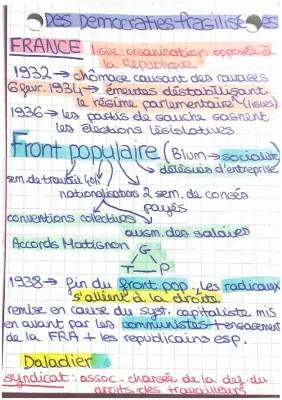 Des Democraties fragilisées
FRANCE ligue: organisation opposée à
la République
1932 → chômage causant des ravages
6 fevr. 1934 → émeutes déstabilisant
le régime parlementaire (ligues)
1936 → les partis de gauche gagnent
les élections législatives
Front populaire (Blum → socialiste)
délégués d'entreprise
sem. de travail 40h
nationalisations 2 sem. de congés
payés
conventions collectives
augm. des salaires
Accords Matignon
G
T P
1938 → fin du front pop, les radicaux
s'allient à la droite
remise en cause du syst. capitaliste mis
en avant par les communistes + engagement
de la FRA + les republicains esp.
Daladier
syndicat: assoc. chargée de la def. du
droits des travailleurs